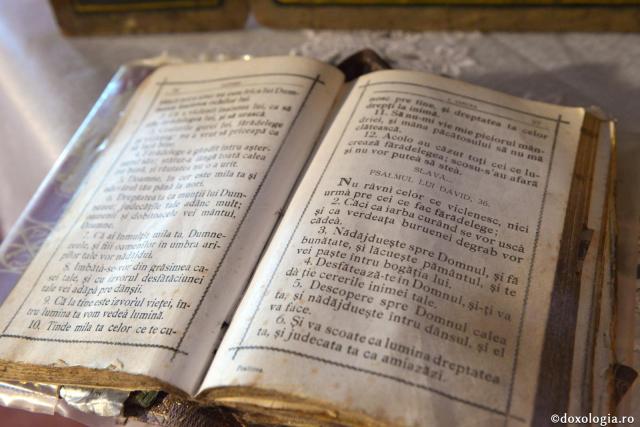 rea ochilor lui
5. Doamne, în cer este mila ta și
adevărul tău până la nori.
6. Dreptatea ta ca munții lui Dum-
nezeu, judecățile tale adânc mult;
oamenii și dobitoacele vei mântui,
Doamne.
7. Că ai înmulțit mila ta, Dumne-
zeule, și fiii oamenilor în umbra ari-
pilor tale vor nădăjdui.
8. Îmbăta-se-vor din grăsimea ca-
sei tale, și cu izvorul desfătăciunei
tale vei adăpa pre dânșii.
9. Că la tine este izvorul vieței, în-
tru lumina ta vom vedea lumină.
10. Tinde mila ta celor ce te cu-
nosc pre tine, și dreptatea ta celor
drepți la inimă.
11. Să nu-mi vie mie piciorul mân-
driei, și mâna păcătosului să nu mă
clătească.
12. Acolo au căzut toți cei ce lu-
crează fărădelegea; scosu-s'au afară
și nu vor puteà să steà.
SLAVA...
PSALMUL LUI DAVID, 36.
Nu râvni celor ce viclenesc, nici
urmà pre cei ce fac fărădelege;
2. Căci ca iarba curând se vor uscà
și ca verdeața buruenei degrab vor
cădeà.
3. Nădăjduește spre Domnul, și fă
bunătate, și lăcuește pământul, și te
vei paște întru bogăția lui.
4. Desfătează-te în Domnul, și-ți va
dà ție cererile inimei tale.
5. Descopere spre Domnul calea
ta, și nădăjduește întru dânsul, și el
va face.
6. Și va scoate ca lumina dreptatea
ta, și judecata ta ca amiazăzi.
Psaltirea.
©doxologia.ro